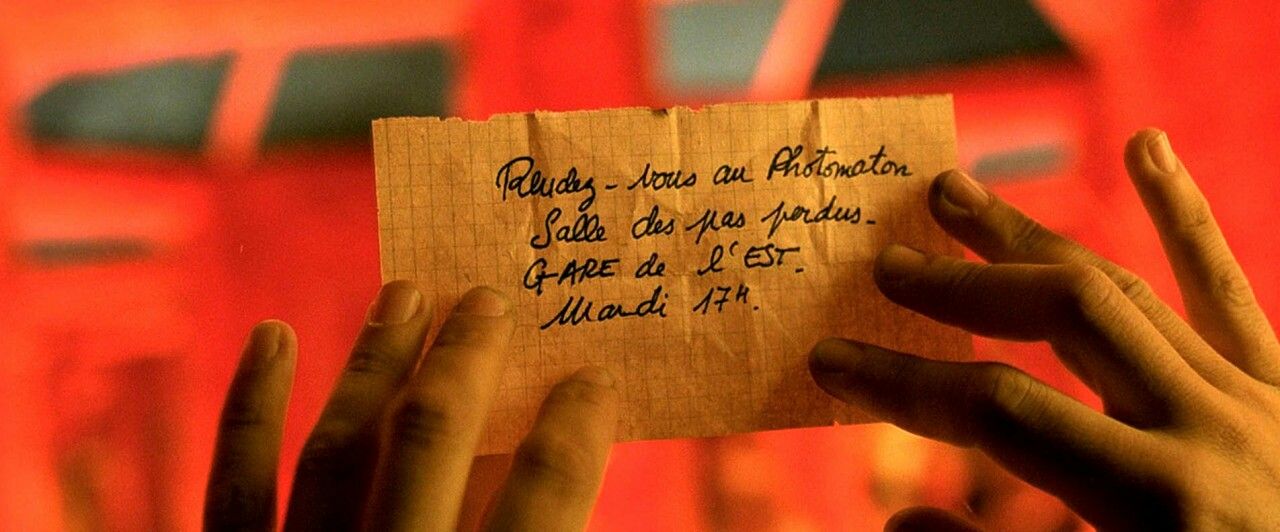 Rendez-vous au Photomaton
Salle des pas perdus-
GARE de l'EST.
Mardi 17H.